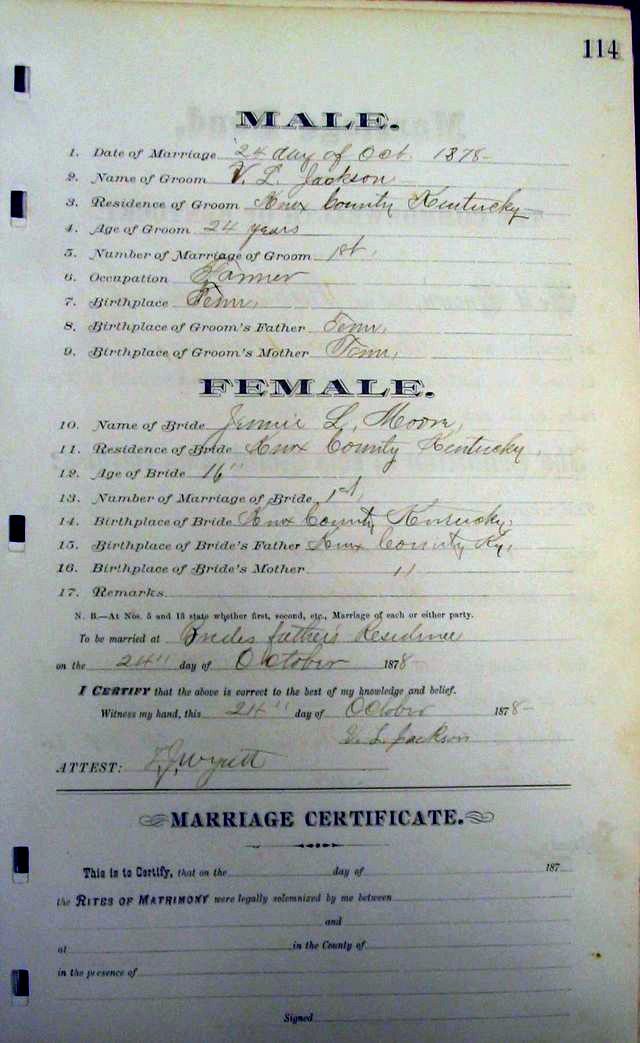 114
MALE.
1. Date of Marriage 24 day of Oct. 1878
2. Name of Groom V. L. Jackson
3. Residence of Groom Knox County Kentucky
4. Age of Groom 24 years
5. Number of Marriage of Groom 1st,
6. Occupation Farmer
7. Birthplace Tenn,
8. Birthplace of Groom's Father Tenn,
9. Birthplace of Groom's Mother Tenn,
FEMALE.
10. Name of Bride Jennie L. Moore,
11. Residence of Bride Knox County Kentucky,
12. Age of Bride 16"
13. Number of Marriage of Bride 1st,
14. Birthplace of Bride Knox County Kentucky,
15. Birthplace of Bride's Father Knox County Ky,
16. Birthplace of Bride's Mother "
17. Remarks
N. B.—At Nos. 5 and 13 state whether first, second, etc., Marriage of each or either party.
To be married at Brides father's Residence
on the 24" day of October 1878
I CERTIFY that the above is correct to the best of my knowledge and belief.
Witness my hand, this 24" day of October 1878
V. L. Jackson
ATTEST: Wyatt
MARRIAGE CERTIFICATE.
This is to Certify, that on the day of 187
the RITES OF MATRIMONY were legally solemnized by me between
and
at in the County of
in the presence of
Signed